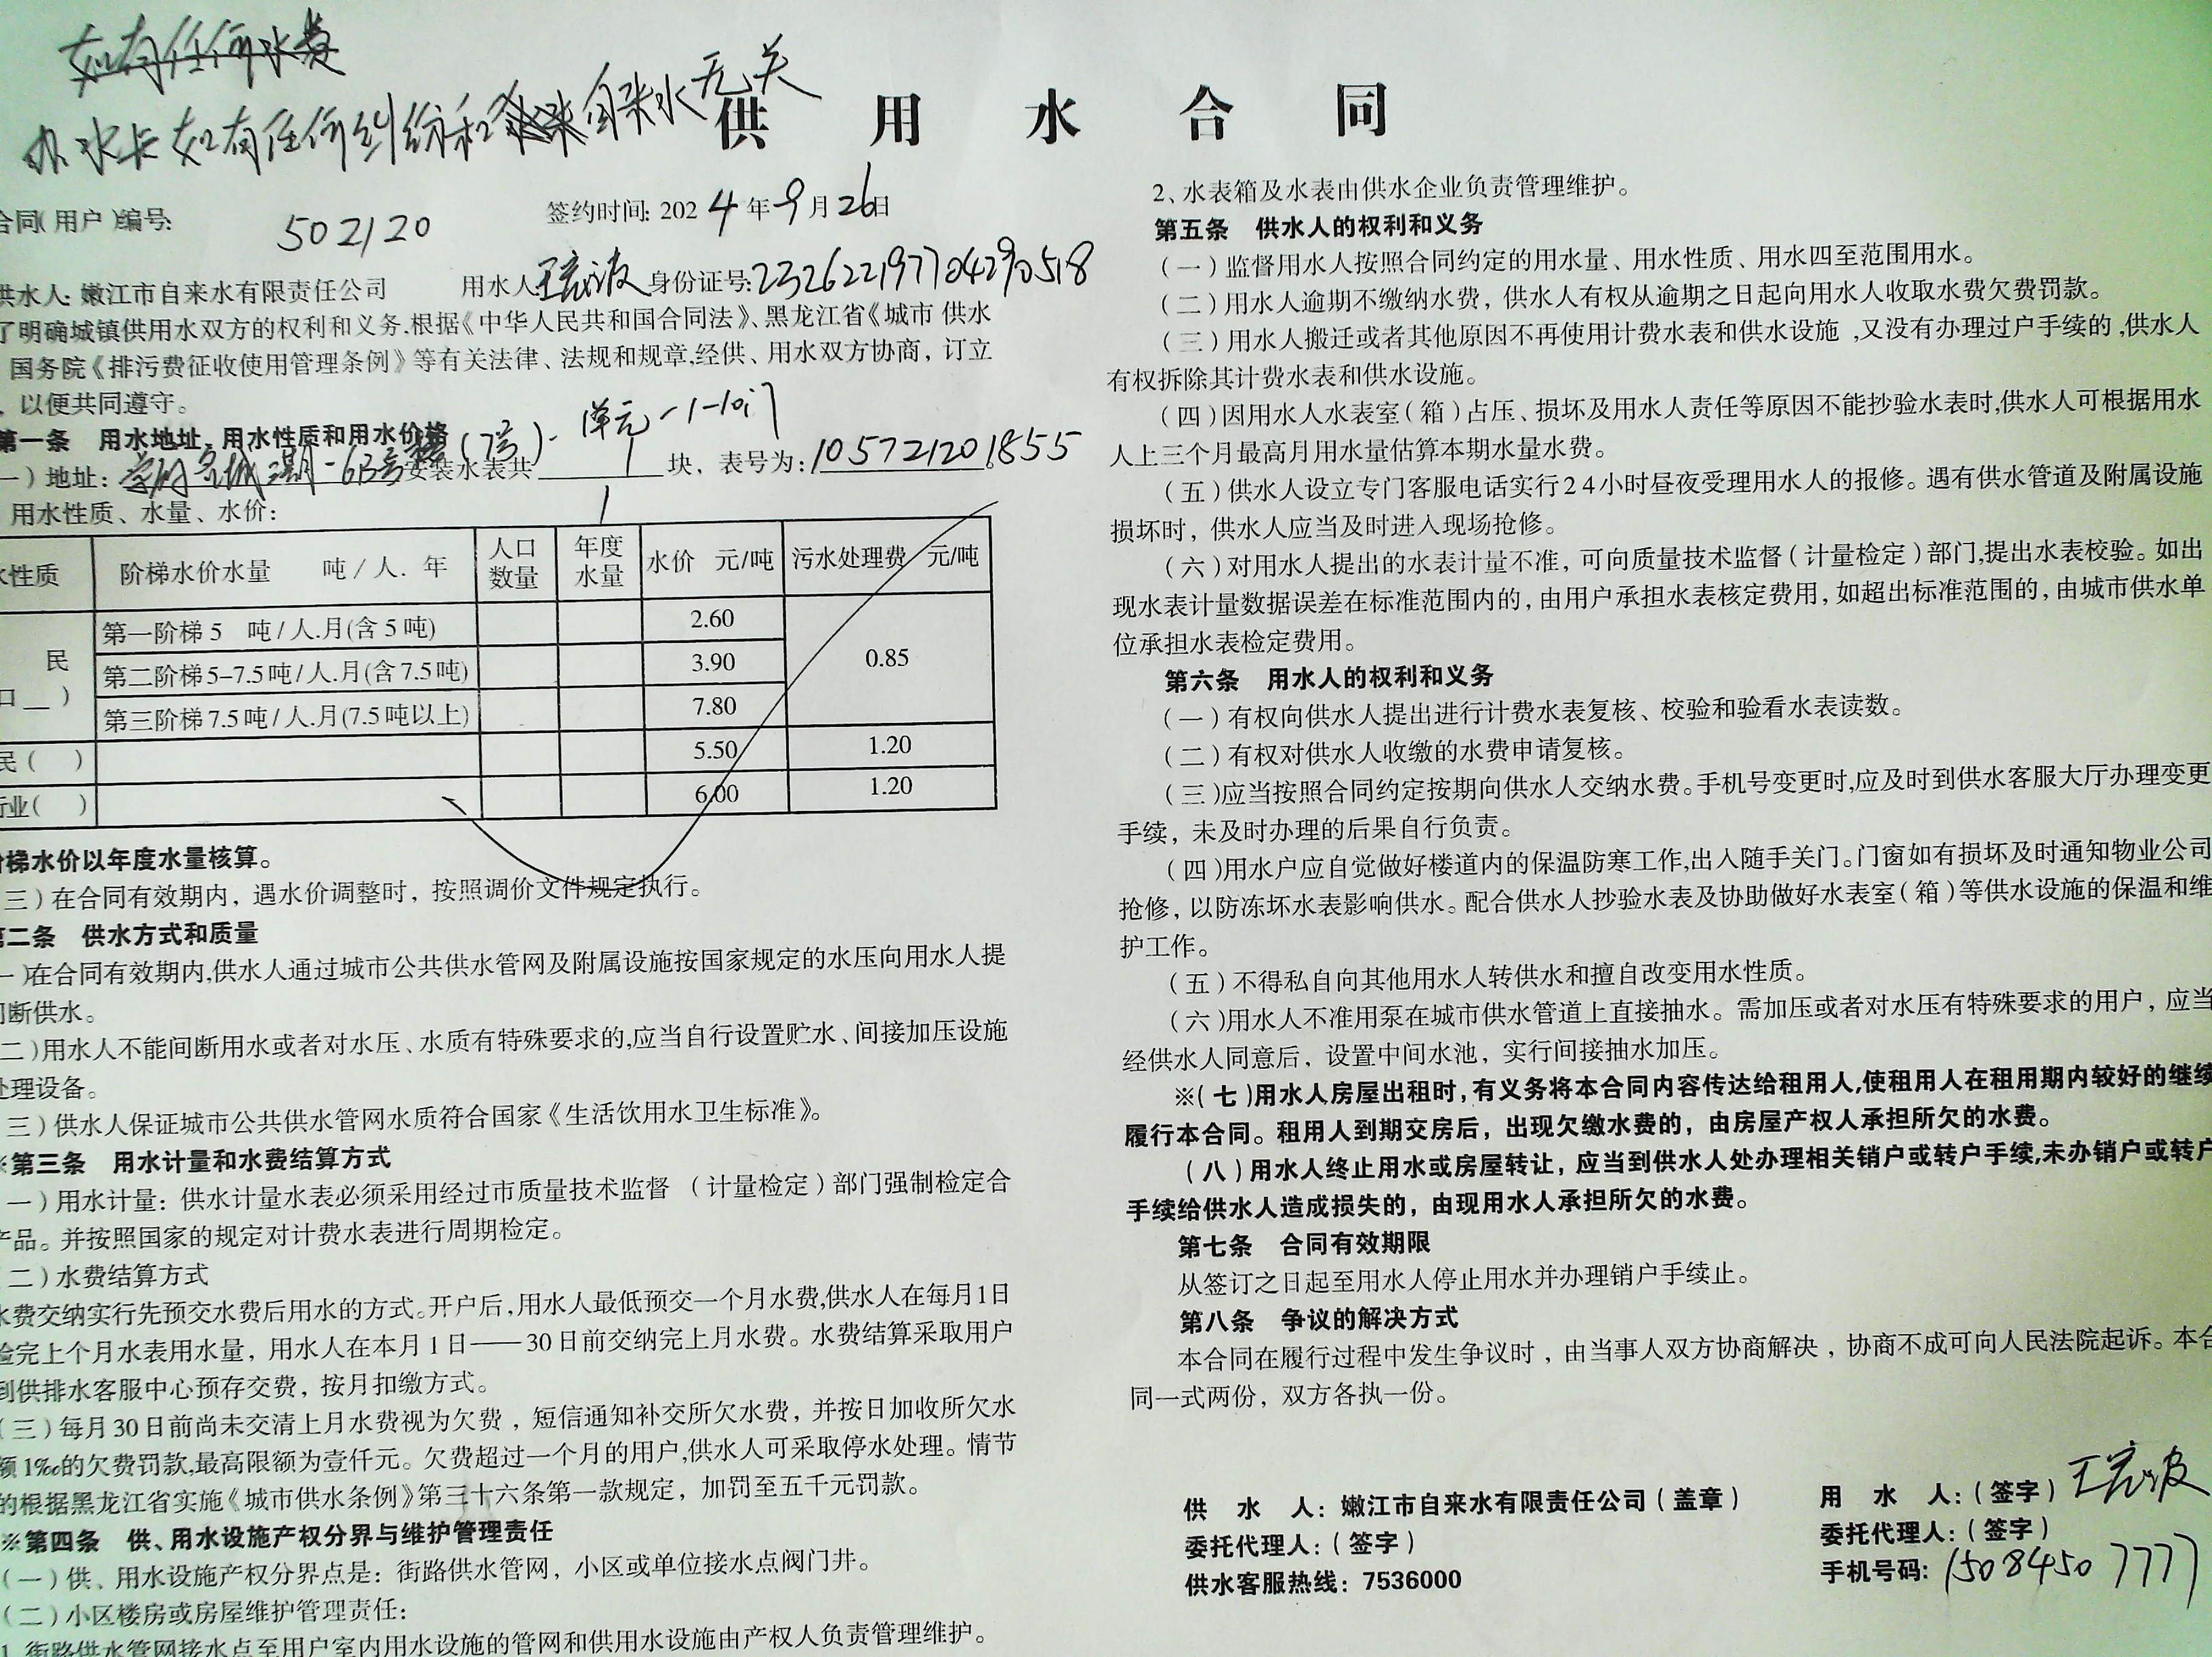 如有任何水费
办水卡如有任何纠纷和自来水无关
供用水合同
合同(用户)编号: 502120
签约时间: 2024年9月26日
供水人: 嫩江市自来水有限责任公司 用水人 王宏波 身份证号: 232622197704290518
了明确城镇供用水双方的权利和义务.根据《中华人民共和国合同法》、黑龙江省《城市 供水
国务院《排污费征收使用管理条例》等有关法律、法规和规章,经供、用水双方协商，订立
，以便共同遵守。
第一条 用水地址、用水性质和用水价格
单元-1-10门
一）地址: 6号楼(7号) 安装水表共 1 块，表号为: 105721201855
用水性质、水量、水价:
水性质 阶梯水价水量 吨/人. 年 人口数量 年度水量 水价 元/吨 污水处理费 元/吨
民
口__ )
第一阶梯5 吨/人.月(含5吨) 2.60 0.85
第二阶梯5-7.5吨/人.月(含7.5吨) 3.90
第三阶梯7.5吨/人.月(7.5吨以上) 7.80
民( ) 5.50 1.20
行业( ) 6.00 1.20
阶梯水价以年度水量核算。
三)在合同有效期内，遇水价调整时，按照调价文件规定执行。
第二条 供水方式和质量
一)在合同有效期内,供水人通过城市公共供水管网及附属设施按国家规定的水压向用水人提
间断供水。
二)用水人不能间断用水或者对水压、水质有特殊要求的,应当自行设置贮水、间接加压设施
处理设备。
三)供水人保证城市公共供水管网水质符合国家《生活饮用水卫生标准》。
※第三条 用水计量和水费结算方式
一)用水计量: 供水计量水表必须采用经过市质量技术监督 (计量检定)部门强制检定合
产品。并按照国家的规定对计费水表进行周期检定。
二)水费结算方式
水费交纳实行先预交水费后用水的方式。开户后,用水人最低预交一个月水费,供水人在每月1日
验完上个月水表用水量，用水人在本月1日——30日前交纳完上月水费。水费结算采取用户
到供排水客服中心预存交费，按月扣缴方式。
(三)每月30日前尚未交清上月水费视为欠费，短信通知补交所欠水费，并按日加收所欠水
额1‰的欠费罚款,最高限额为壹仟元。欠费超过一个月的用户,供水人可采取停水处理。情节
的根据黑龙江省实施《城市供水条例》第三十六条第一款规定，加罚至五千元罚款。
※第四条 供、用水设施产权分界与维护管理责任
(一)供、用水设施产权分界点是: 街路供水管网，小区或单位接水点阀门井。
(二)小区楼房或房屋维护管理责任:
1、街路供水管网接水点至用户室内用水设施的管网和供用水设施由产权人负责管理维护。
2、水表箱及水表由供水企业负责管理维护。
第五条 供水人的权利和义务
(一)监督用水人按照合同约定的用水量、用水性质、用水四至范围用水。
(二)用水人逾期不缴纳水费，供水人有权从逾期之日起向用水人收取水费欠费罚款。
(三)用水人搬迁或者其他原因不再使用计费水表和供水设施 ,又没有办理过户手续的 ,供水人
有权拆除其计费水表和供水设施。
(四)因用水人水表室(箱)占压、损坏及用水人责任等原因不能抄验水表时,供水人可根据用水
人上三个月最高月用水量估算本期水量水费。
(五)供水人设立专门客服电话实行24小时昼夜受理用水人的报修。遇有供水管道及附属设施
损坏时，供水人应当及时进入现场抢修。
(六)对用水人提出的水表计量不准，可向质量技术监督(计量检定)部门,提出水表校验。如出
现水表计量数据误差在标准范围内的，由用户承担水表核定费用，如超出标准范围的，由城市供水单
位承担水表检定费用。
第六条 用水人的权利和义务
(一)有权向供水人提出进行计费水表复核、校验和验看水表读数。
(二)有权对供水人收缴的水费申请复核。
(三)应当按照合同约定按期向供水人交纳水费。手机号变更时,应及时到供水客服大厅办理变更
手续，未及时办理的后果自行负责。
(四)用水户应自觉做好楼道内的保温防寒工作,出入随手关门。门窗如有损坏及时通知物业公司
抢修，以防冻坏水表影响供水。配合供水人抄验水表及协助做好水表室(箱)等供水设施的保温和维
护工作。
(五)不得私自向其他用水人转供水和擅自改变用水性质。
(六)用水人不准用泵在城市供水管道上直接抽水。需加压或者对水压有特殊要求的用户，应当
经供水人同意后，设置中间水池，实行间接抽水加压。
※(七)用水人房屋出租时,有义务将本合同内容传达给租用人,使租用人在租用期内较好的继续
履行本合同。租用人到期交房后，出现欠缴水费的，由房屋产权人承担所欠的水费。
(八)用水人终止用水或房屋转让，应当到供水人处办理相关销户或转户手续,未办销户或转户
手续给供水人造成损失的，由现用水人承担所欠的水费。
第七条 合同有效期限
从签订之日起至用水人停止用水并办理销户手续止。
第八条 争议的解决方式
本合同在履行过程中发生争议时，由当事人双方协商解决，协商不成可向人民法院起诉。本合
同一式两份，双方各执一份。
供 水 人: 嫩江市自来水有限责任公司(盖章)
委托代理人:(签字)
供水客服热线: 7536000
用 水 人:(签字) 王宏波
委托代理人:(签字)
手机号码: 15084507777